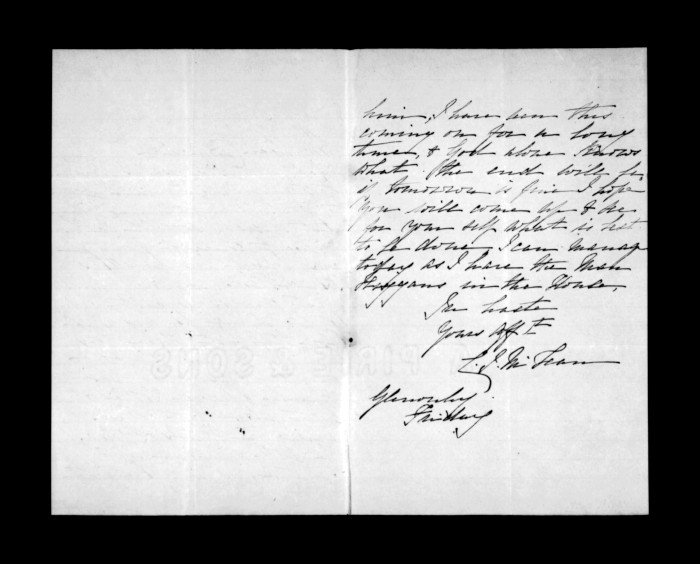 him, I have seen this
coming on for a long
time, & God alone knows
what the end will be,
if tomorrow is fine I hope
you will come up & see
for your self what is best
to be done I can manage
today as I have the Man
in the House,
In haste
Yours Afft
L. J. McLean
Glenorchy
Friday
PIRIE & SONS